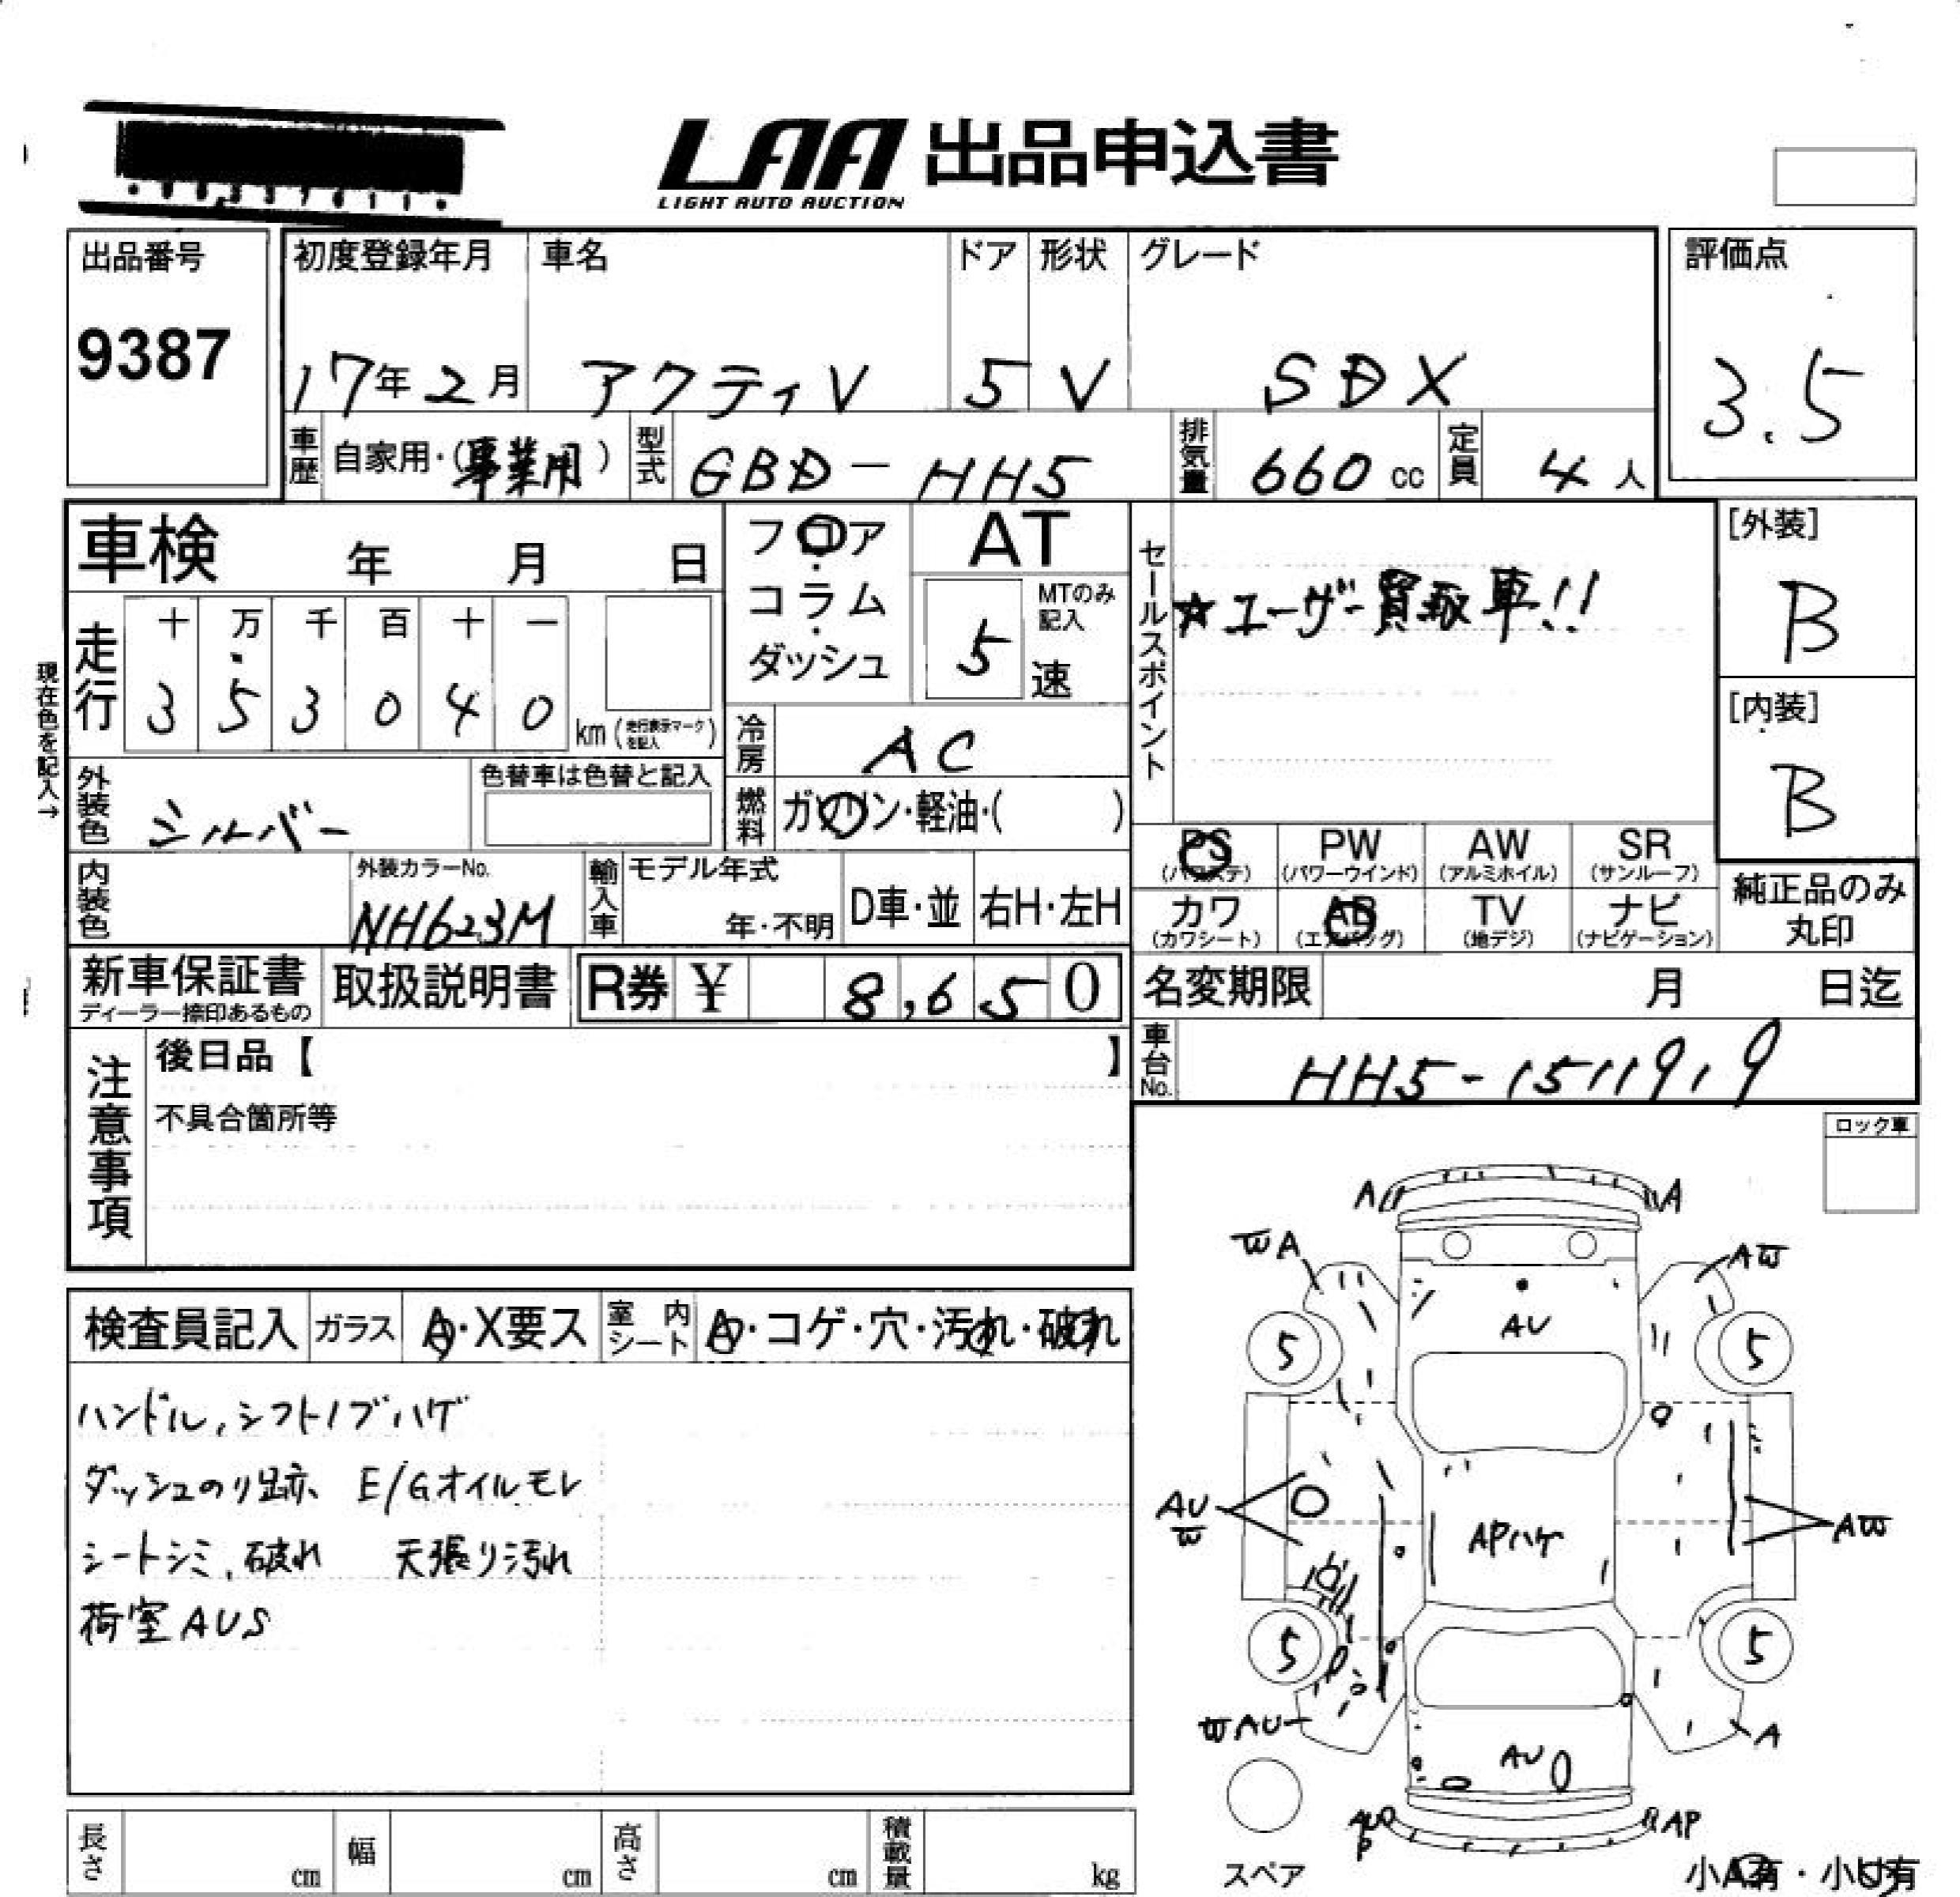 LAA 出品申込書
LIGHT AUTO AUCTION
出品番号
9387
初度登録年月
17年2月
車名
アクティV
ドア
5
形状
V
グレード
SDX
評価点
3.5
車歴
自家用・(事業用)
型式
GBD-HH5
排気量
660cc
定員
4人
車検 年 月 日
フロア・コラム・ダッシュ
AT
MTのみ記入
5速
セールスポイント
★ユーザー買取車!!
[外装]
B
[内装]
B
現在色を記入→
走行
十 万 千 百 十 一
3 5 3 0 4 0 km (走行表示マークを記入)
冷房
AC
外装色
シルバー
色替車は色替と記入
燃料
ガソリン・軽油・( )
PS (パワステ)
PW (パワーウインド)
AW (アルミホイル)
SR (サンルーフ)
カワ (カワシート)
AB (エアバッグ)
TV (地デジ)
ナビ (ナビゲーション)
純正品のみ丸印
内装色
外装カラーNo.
NH623M
輸入車
モデル年式
年・不明
D車・並
右H・左H
新車保証書
ディーラー捺印あるもの
取扱説明書
R券 ¥ 8,650
名変期限 月 日迄
車台No.
HH5-1511919
注意事項
後日品【 】
不具合箇所等
ロック車
検査員記入
ガラス
A・X要ス
室内シート
A・コゲ・穴・汚れ・破れ
ハンドル,シフトノブハゲ
ダッシュのり跡、 E/Gオイルモレ
シートシミ,破れ 天張り汚れ
荷室AUS
A
A
WA
AW
AU
5
5
AU
W
APハゲ
AW
5
5
WAU
A
AU
AU
P
AP
スペア
小A有・小U有
長さ cm
幅 cm
高さ cm
積載量 kg